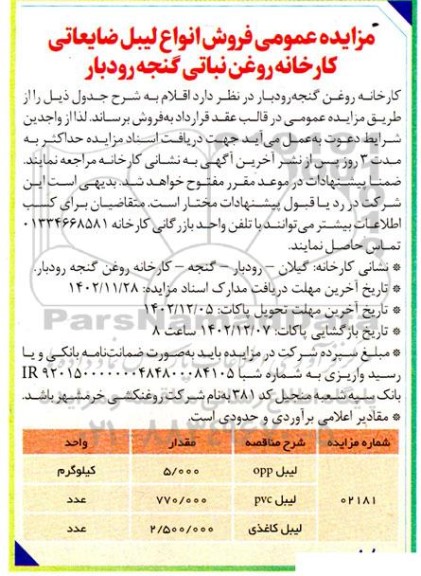 مزایده عمومی فروش انواع لیبل ضایعاتی
کارخانه روغن نباتی گنجه رودبار
کارخانه روغن گنجه رودبار در نظر دارد اقلام به شرح جدول ذیل را از
طریق مزایده عمومی در قالب عقد قرارداد به فروش برساند. لذا از واجدین
شرایط دعوت به عمل می آید جهت دریافت اسناد مزایده حداکثر به
مدت ۳ روز پس از نشر آخرین آگهی به نشانی کارخانه مراجعه نمایند.
ضمناً پیشنهادات در موعد مقرر مفتوح خواهد شد. بدیهی است این
شرکت در رد یا قبول پیشنهادات مختار است. متقاضیان برای کسب
اطلاعات بیشتر می توانند با تلفن واحد بازرگانی کارخانه ۰۱۳۳۴۶۶۸۵۸۱
تماس حاصل نمایند.
* نشانی کارخانه: گیلان – رودبار – گنجه – کارخانه روغن گنجه رودبار.
* تاریخ آخرین مهلت دریافت مدارک اسناد مزایده: ۱۴۰۲/۱۱/۲۸
* تاریخ آخرین مهلت تحویل پاکات: ۱۴۰۲/۱۲/۰۵
* تاریخ بازگشایی پاکات: ۱۴۰۲/۱۲/۰۷ ساعت ۸
* مبلغ سپرده شرکت در مزایده باید به صورت ضمانت نامه بانکی و یا
رسید واریزی به شماره شبا IR ۹۲۰۱۵۰۰۰۰۰۰۰۴۴۸۴۸۰۰۰۸۴۱۰۵
بانک سپه شعبه منجیل کد ۳۸۱ به نام شرکت روغنکشی خرمشهر باشد.
* مقادیر اعلامی برآوردی و حدودی است.
شماره مزایده شرح مناقصه مقدار واحد
لیبل opp ۵/۰۰۰ کیلوگرم
۰۲۱۸۱ لیبل pvc ۷۷۰/۰۰۰ عدد
لیبل کاغذی ۲/۵۰۰/۰۰۰ عدد